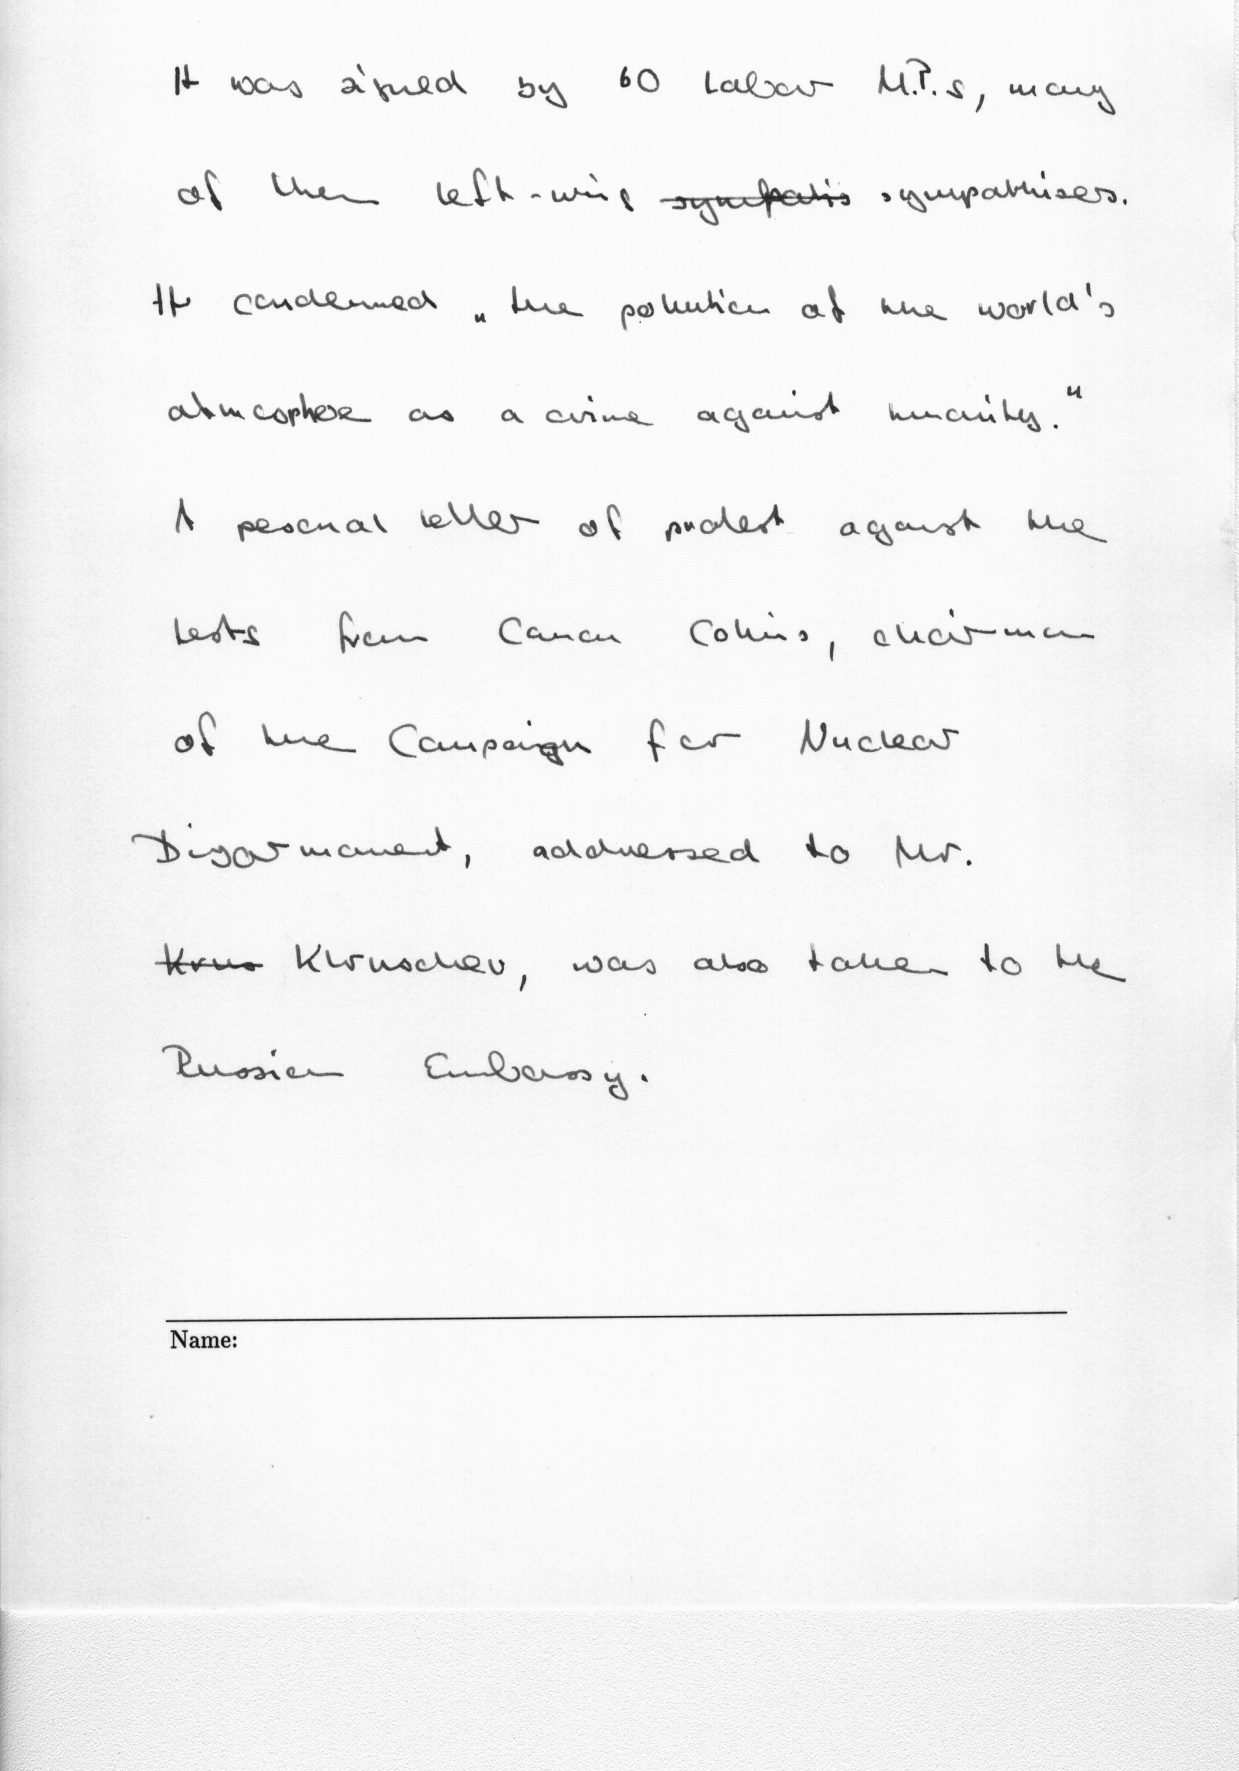 It was signed by 60 Labour M.P.s, many
of them left-wing sympatis sympathisers.
It condemned „the pollution of the world's
atmosphere as a crime against humanity."
A personal letter of protest against the
tests from Canon Collins, chairman
of the Campaign for Nuclear
Disarmament, addressed to Mr.
Krus Khruschev, was also taken to the
Russian Embassy.
Name: